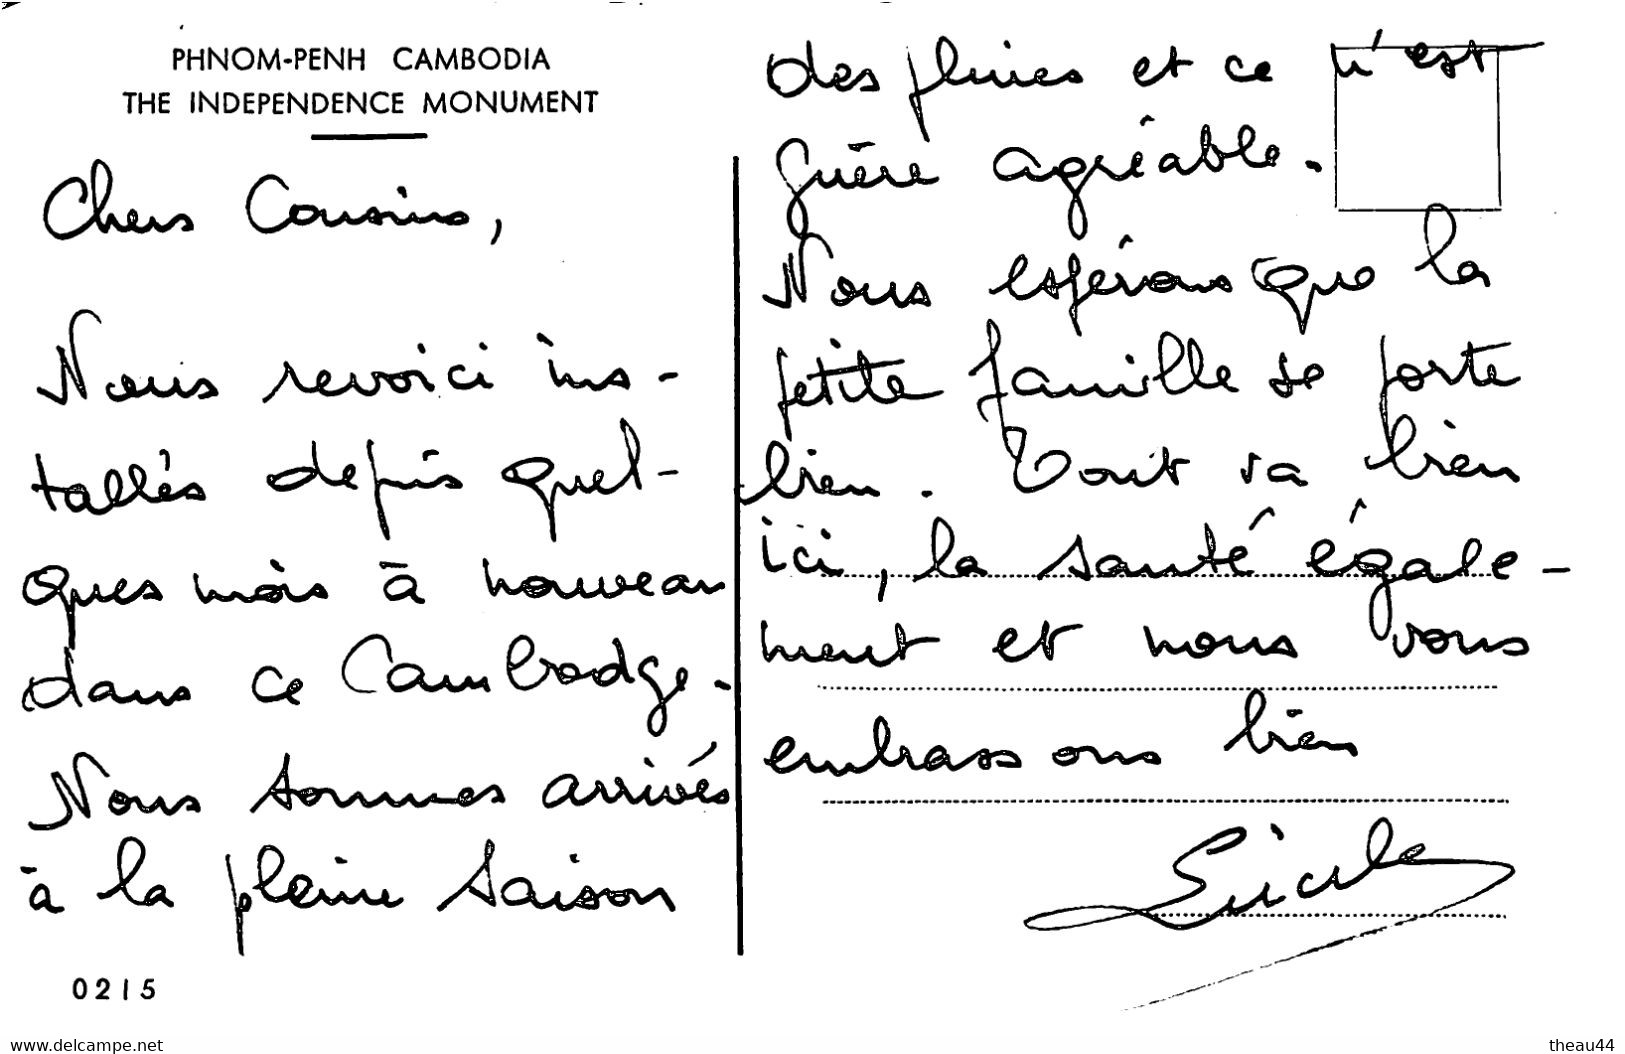 PHNOM-PENH CAMBODIA
THE INDEPENDENCE MONUMENT
Chers Cousins,
Nous revoici ins-
tallés depuis quel-
ques mois à nouveau
dans ce Cambodge.
Nous sommes arrivés
à la pleine saison
0215
des pluies et ce n'est
guère agréable.
Nous espérons que la
petite famille se porte
bien. Tout va bien
ici, la santé égale-
ment et nous vous
embrassons bien
www.delcampe.net
theau44